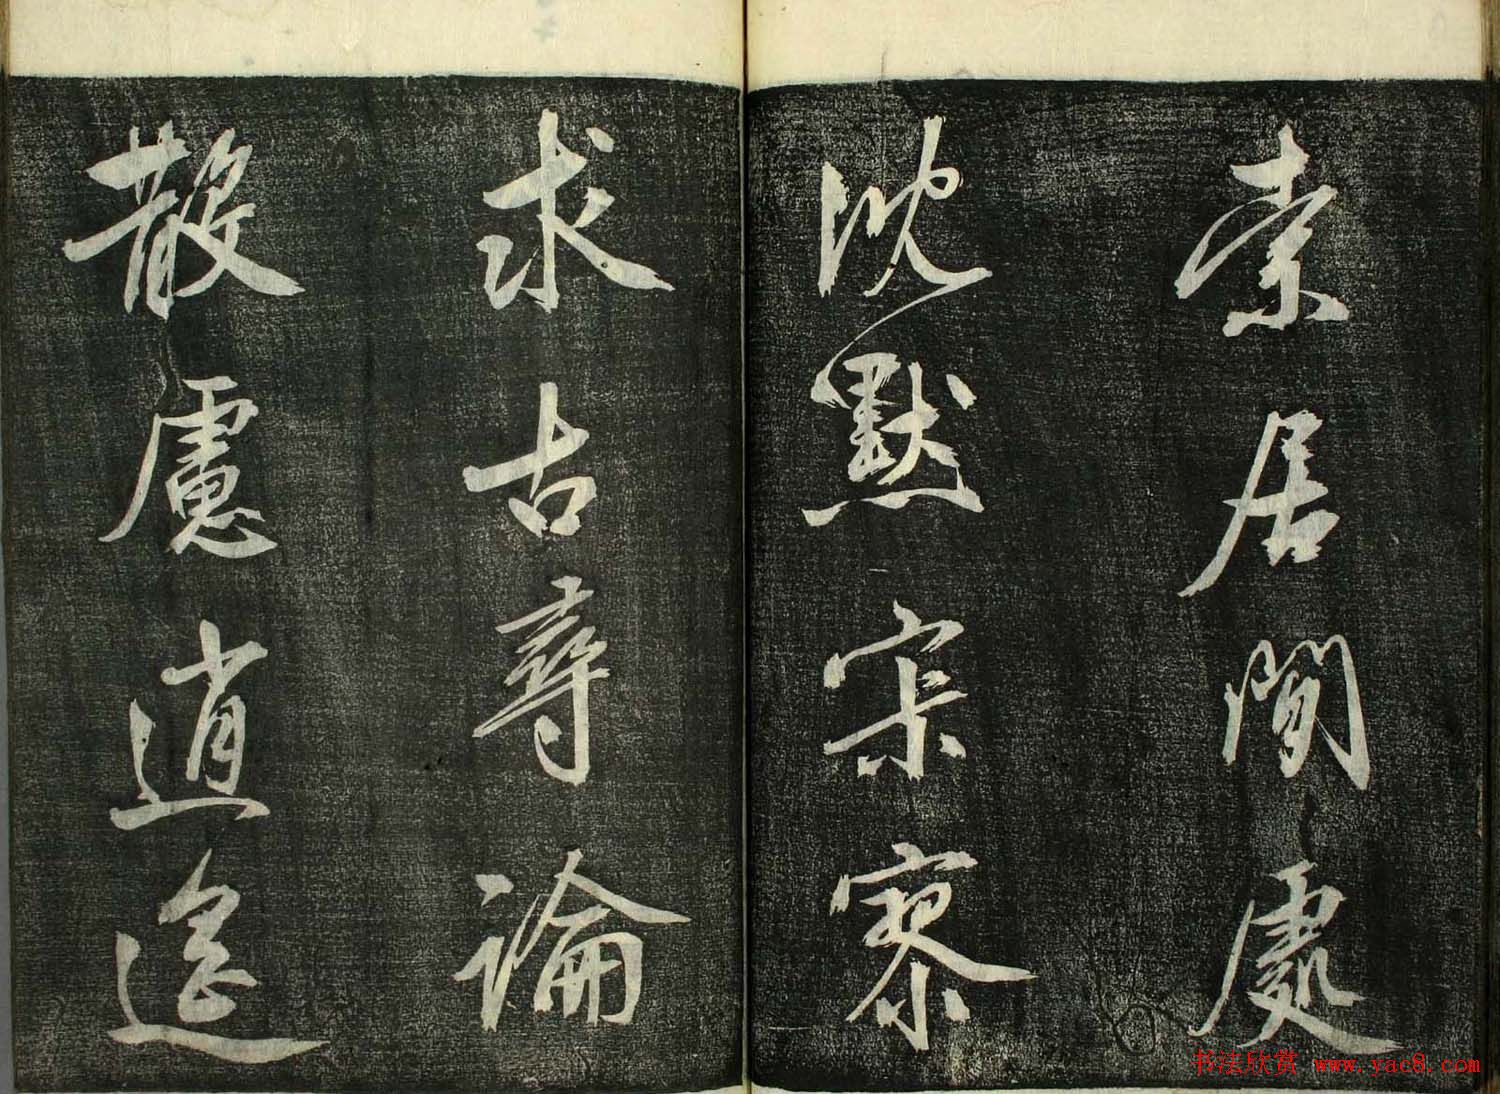 索居閒處
沈默寂寥
求古尋論
散慮逍遙
书法欣赏 www.yac8.com